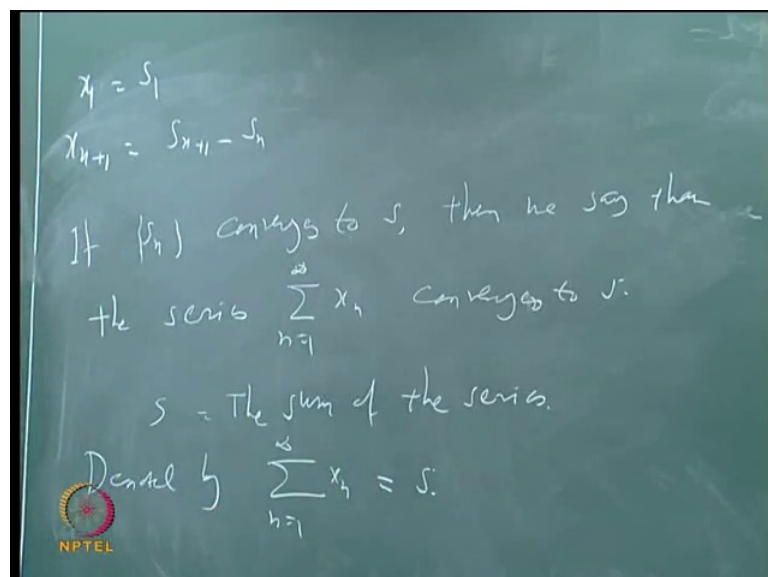 x₁ = S₁
xₙ₊₁ = Sₙ₊₁ - Sₙ
If {Sₙ} converges to S, then we say that
the series ∑_{n=1}^{∞} xₙ converges to S.
S = The sum of the series.
Denoted by ∑_{n=1}^{∞} xₙ = S.
NPTEL